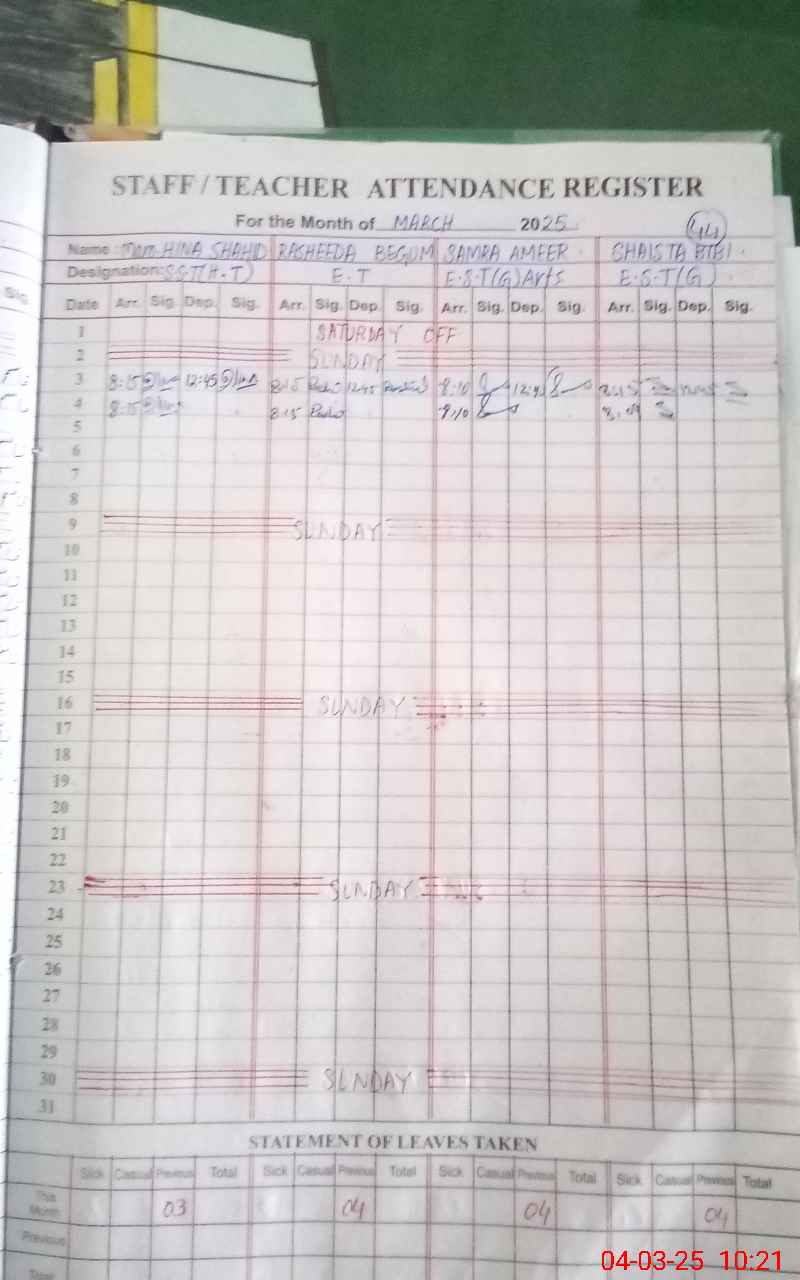 STAFF / TEACHER ATTENDANCE REGISTER
For the Month of MARCH 2025
44
Name : Mam HINA SHAHID RASHEEDA BEGUM SAMRA AMEER SHAISTA BIBI
Designation: S.S.T(H.T) E.T E.S.T(G)Arts E.S.T(G)
Date Arr. Sig. Dep. Sig. Arr. Sig. Dep. Sig. Arr. Sig. Dep. Sig. Arr. Sig. Dep. Sig.
1 SATURDAY OFF
2 SUNDAY
3 8:15 12:45 8:15 12:45 8:10
4 8:15 8:15 8:10
5
6
7
8
9 SUNDAY
10
11
12
13
14
15
16 SUNDAY
17
18
19
20
21
22
23 SUNDAY
24
25
26
27
28
29
30 SUNDAY
31
STATEMENT OF LEAVES TAKEN
Sick Casual Previous Total Sick Casual Previous Total Sick Casual Previous Total Sick Casual Previous Total
This Month 03 04 04 04
Previous
Total
04-03-25 10:21